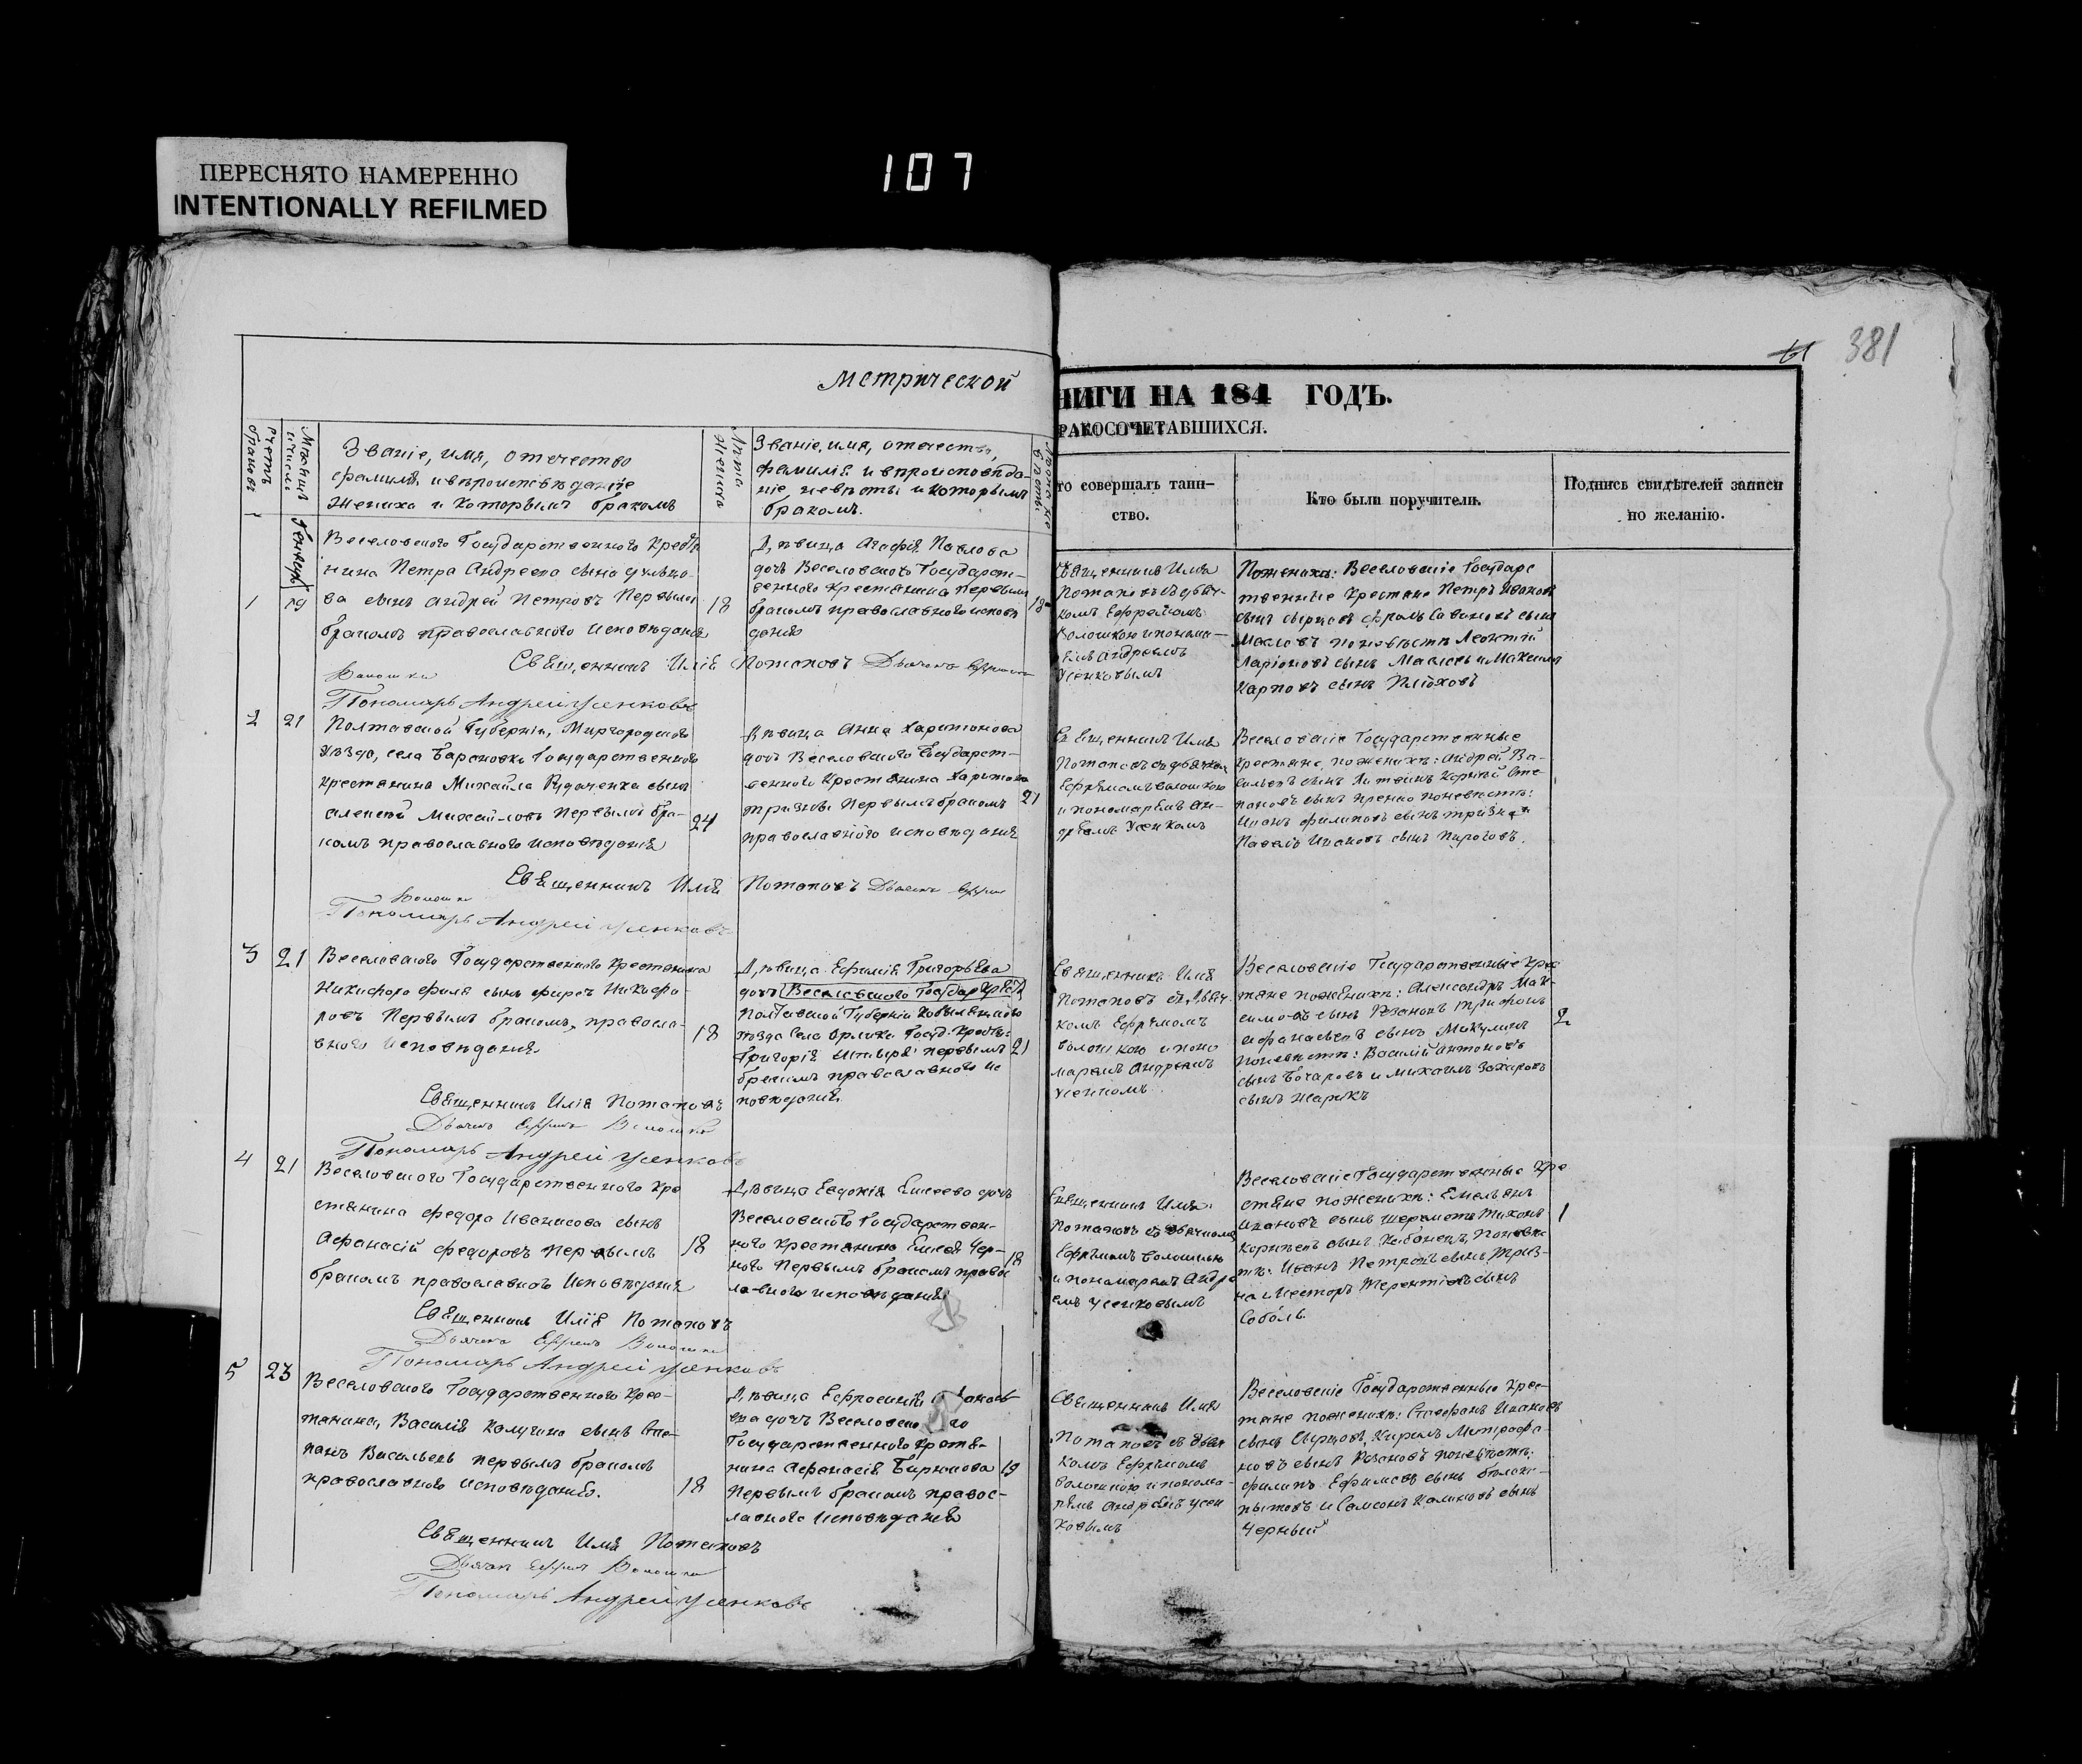 ПЕРЕСНЯТО НАМЕРЕННО
INTENTIONALLY REFILMED
107
381
Метрической
НИГИ НА 184 ГОДЪ.
РАКОСОЧЕТАВШИХСЯ.
Званіе, имя, отечество
фамилія и вѣроисповѣданіе
Жениха и Которымъ бракомъ
Лѣта
Жениха
Званіе, имя, отечество,
фамилія и вѣроисповѣда-
ніе невѣсты и которымъ
бракомъ.
то совершалъ таин-
ство.
Кто были поручители.
Подпись свидѣтелей записи
по желанію.
1
19
Веселовского Государственного Крестья
нина Петра Андреева сына
сынъ Андрей Петровъ Первымъ
бракомъ православного исповѣданія
18
Дѣвица Агафія Павлова
дочь Веселовского Государст-
венного Крестянина Первымъ
бракомъ православного исповѣ
данія
18
Священникъ Илія
Потаповъ съ дьяч-
комъ Ефремомъ
Волошкою и понома-
ремъ Андреемъ
Усенковымъ
По женихѣ: Веселовскіе Государс
твенные Крестяне Петръ Ивановъ
Масловъ по невѣстѣ Леонтій
Ларіоновъ сынъ Масловъ и Максимъ
Карповъ сынъ
Священникъ Илія Потаповъ Дьячекъ Ефремъ
Волошка
Пономарь Андрей Усенковъ
2
21
Полтавской Губерніи, Миргородского
уѣзда, села Барановки Государственного
крестянина Михайла Рудаченка сынъ
Алексѣй Михайловъ Первымъ бра-
комъ православного исповѣданія
24
Дѣвица Анна Харитонова
дочь Веселовского Государст-
венного Крестянина Харитона
Тризны Первымъ бракомъ
православного исповѣданія
21
Священникъ Илія
Потаповъ съ дьячкомъ
Ефремомъ Волошкою
и пономаремъ Ан-
дреемъ Усенкомъ
Веселовскіе Государственные
крестяне, по женихѣ: Андрей Ва-
сильевъ сынъ Литвинъ Корнѣй Сте
пановъ сынъ по невѣстѣ:
Иванъ Филиповъ сынъ Тризна и
Павелъ Ивановъ сынъ Пироговъ.
Священникъ Илія Потаповъ Дьячекъ Ефремъ
Волошка
Пономарь Андрей Усенковъ
3
21
Веселовского Государственного Крестянина
Никифора Филя сынъ Фирсъ Никифо-
ровъ Первымъ бракомъ, правосла-
вного исповѣданія.
18
Дѣвица Ефимія Григорьева
дочь Веселовского Государ Крест
Полтавской Губерніи Кобыляцкого
уѣзда Села Орлика Госуд. Крестья:
Григорія первымъ
бракомъ православного ис
повѣданія
21
Священникъ Илія
Потаповъ съ дьяч
комъ Ефремомъ
Волошкою и поно
маремъ Андреемъ
Усенкомъ
Веселовскіе Государственные Крес
тяне по женихѣ: Александръ Мак-
симовъ сынъ Рязановъ Трифонъ
Афанасьевъ сынъ Микулинъ
по невѣстѣ: Василій Антоновъ
сынъ Бочаровъ и Михаилъ Захаровъ
сынъ Жарикъ
2
Священникъ Илія Потаповъ
Дьячекъ Ефремъ Волошка
Пономарь Андрей Усенковъ
4
21
Веселовского Государственного Кре
стянина Федора Иванисова сынъ
Афанасій Федоровъ Первымъ
бракомъ православного Исповѣданія
18
Дѣвица Евдокія Елисеева дочь
Веселовского Государствен-
ного крестянина Елисея Чер-
ного Первымъ бракомъ правос
лавного исповѣданія
18
Священникъ Илія
Потаповъ съ дьячкомъ
Ефремомъ Волошкою
и пономаремъ Андре
емъ Усенковымъ
Веселовскіе Государственные Кре
стяне по женихѣ: Емельянъ
Ивановъ сынъ Шереметъ Тихонъ
Корнѣевъ сынъ Кабанецъ, По невѣс
тѣ: Иванъ Петровъ сынъ Триз-
на и Несторъ Терентіевъ сынъ
Соболь.
1
Священникъ Илія Потаповъ
Дьячекъ Ефремъ Волошка
Пономарь Андрей Усенковъ
5
23
Веселовского Государственного Крес-
тянина, Василія Калугина сынъ Сте-
панъ Васильевъ первымъ бракомъ
православного исповѣданія.
18
Дѣвица Ефросинія
ева дочь Веселовского
Государственного крестя-
нина Афанасія Бирюкова
Первымъ бракомъ правос-
лавного Исповѣданія
19
Священникъ Илія
Потаповъ съ дьяч
комъ Ефремомъ
Волошкою и понома-
ремъ Андреемъ Усен
ковымъ
Веселовскіе Государственные Крес-
тяне по женихѣ: Стефанъ Ивановъ
сынъ Кирилъ Митрофа
новъ сынъ Рязановъ по невѣстѣ:
Филипъ Ефимовъ сынъ Бѣлоко-
пытовъ и Самсонъ Калиновъ сынъ
Черный
Священникъ Илія Потаповъ
Дьячекъ Ефремъ Волошка
Пономарь Андрей Усенковъ